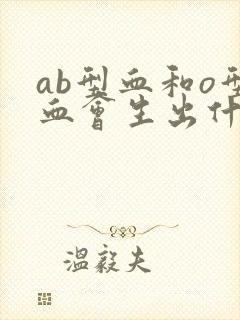 ab型血和o型
血會生出什
溫毅夫